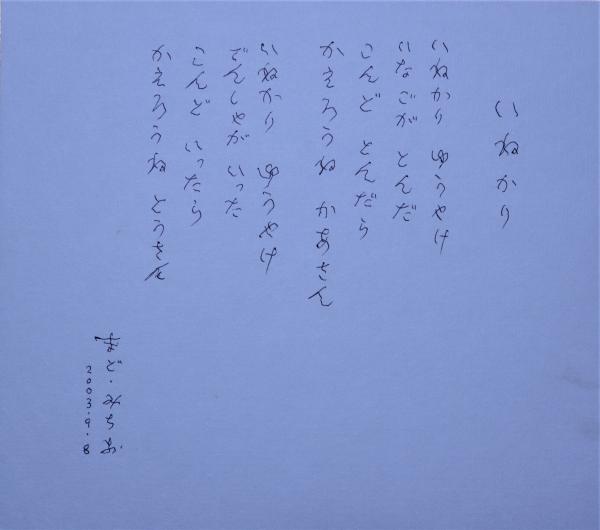 いねかり
いねかり ゆうやけ
いなごが とんだ
こんど とんだら
かえろうね かあさん
いねかり ゆうやけ
でんしゃが いった
こんど いったら
かえろうね とうさん
まど・みちお
2003.9.8